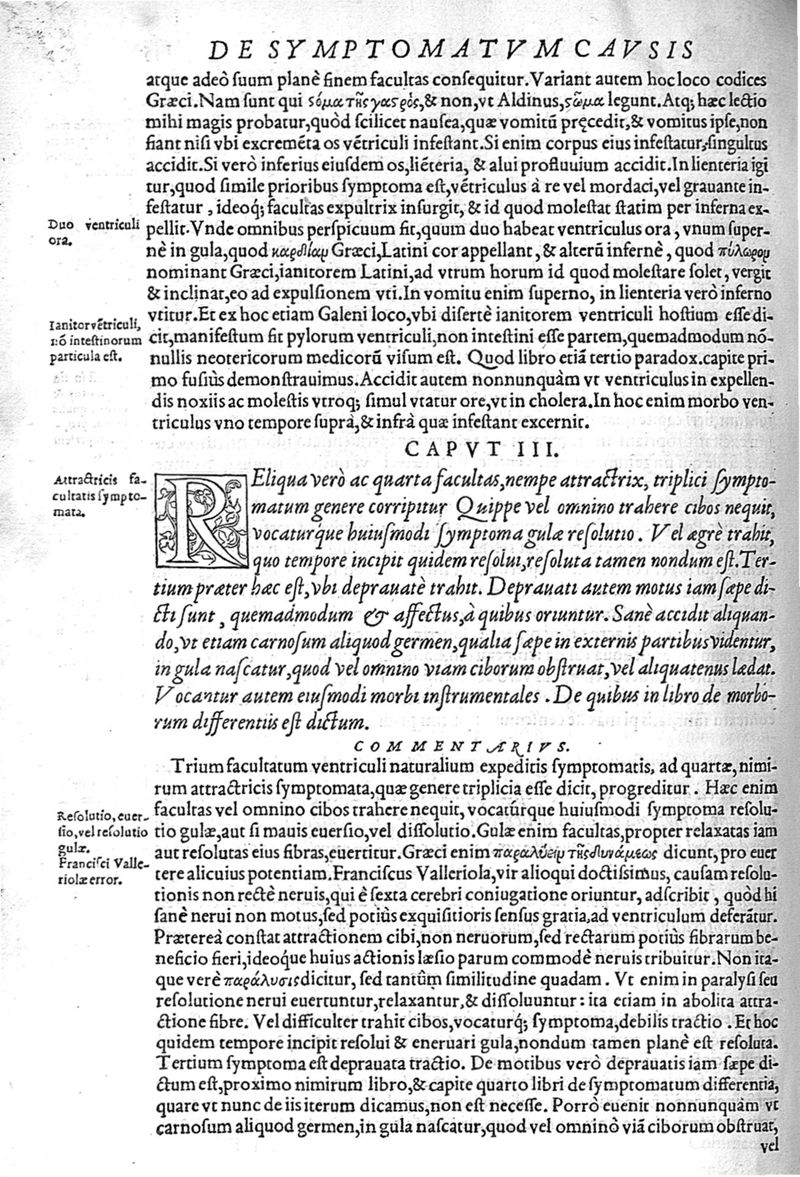 DE SYMPTOMATVM CAVSIS
atque adeô suum planè finem facultas consequitur. Variant autem hoc loco codices
Græci. Nam sunt qui ϛόμα τῆς γαϛρὸς, & non, vt Aldinus, ϛῶμα legunt. Atq; hæc lectio
mihi magis probatur, quòd scilicet nausea, quæ vomitũ pręcedit, & vomitus ipse, non
fiant nisi vbi excremẽta os vẽtriculi infestant. Si enim corpus eius infestatur, singultus
accidit. Si verò inferius eiusdem os, liẽteria, & alui profluuium accidit. In lienteria igi
tur, quod simile prioribus symptoma est, vẽtriculus à re vel mordaci, vel grauante in-
festatur, ideoq; facultas expultrix insurgit, & id quod molestat statim per inferna ex-
Duo ventriculi
ora.
pellit. Vnde omnibus perspicuum fit, quum duo habeat ventriculus ora, vnum super-
nè in gula, quod καρδίαμ Græci, Latini cor appellant, & alterũ infernè, quod πύλωρομ
nominant Græci, ianitorem Latini, ad vtrum horum id quod molestare solet, vergit
& inclinat, eo ad expulsionem vti. In vomitu enim superno, in lienteria verò inferno
vtitur. Et ex hoc etiam Galeni loco, vbi disertè ianitorem ventriculi hostium esse di-
Ianitor vẽtriculi,
nõ intestinorum
particula est.
cit, manifestum fit pylorum ventriculi, non intestini esse partem, quemadmodum nõ-
nullis neotericorum medicorũ visum est. Quod libro etiã tertio paradox. capite pri-
mo fusiùs demonstrauimus. Accidit autem nonnunquàm vt ventriculus in expellen-
dis noxiis ac molestis vtroq; simul vtatur ore, vt in cholera. In hoc enim morbo ven-
triculus vno tempore suprà, & infrà quæ infestant excernit.
CAPVT III.
Attractricis fa-
cultatis sympto-
mata.
REliqua verò ac quarta facultas, nempe attractrix, triplici sympto-
matum genere corripitur Quippe vel omnino trahere cibos nequit,
vocaturque huiusmodi symptoma gulæ resolutio. Vel ægrè trahit,
quo tempore incipit quidem resolui, resoluta tamen nondum est. Ter-
tium præter hæc est, vbi deprauatè trahit. Deprauati autem motus iam sæpe di-
cti sunt, quemadmodum & affectus, à quibus oriuntur. Sanè accidit aliquan-
do, vt etiam carnosum aliquod germen, qualia sæpe in externis partibus videntur,
in gula nascatur, quod vel omnino viam ciborum obstruat, vel aliquatenus lædat.
Vocantur autem eiusmodi morbi instrumentales. De quibus in libro de morbo-
rum differentiis est dictum.
COMMENTARIVS.
Trium facultatum ventriculi naturalium expeditis symptomatis, ad quartæ, nimi-
rum attractricis symptomata, quæ genere triplicia esse dicit, progreditur. Hæc enim
Resolutio, euer-
sio, vel resolutio
gulæ.
Francisci Valle-
riolæ error.
facultas vel omnino cibos trahere nequit, vocatúrque huiusmodi symptoma resolu-
tio gulæ, aut si mauis euersio, vel dissolutio. Gulæ enim facultas, propter relaxatas iam
aut resolutas eius fibras, euertitur. Græci enim παραλύειμ τῆς δυνάμεως dicunt, pro euer
tere alicuius potentiam. Franciscus Valleriola, vir alioqui doctissimus, causam resolu-
tionis non rectè neruis, qui è sexta cerebri coniugatione oriuntur, adscribit, quòd hi
sanè nerui non motus, sed potiùs exquisitioris sensus gratia, ad ventriculum deferãtur.
Prætereà constat attractionem cibi, non neruorum, sed rectarum potiùs fibrarum be-
neficio fieri, ideoque huius actionis læsio parum commodè neruis tribuitur. Non ita-
que verè παράλυσις dicitur, sed tantùm similitudine quadam. Vt enim in paralysi seu
resolutione nerui euertuntur, relaxantur, & dissoluuntur: ita etiam in abolita attra-
ctione fibre. Vel difficulter trahit cibos, vocaturq; symptoma, debilis tractio. Et hoc
quidem tempore incipit resolui & eneruari gula, nondum tamen planè est resoluta.
Tertium symptoma est deprauata tractio. De motibus verò deprauatis iam sæpe di-
ctum est, proximo nimirum libro, & capite quarto libri de symptomatum differentia,
quare vt nunc de iis iterum dicamus, non est necesse. Porrò euenit nonnunquàm vt
carnosum aliquod germen, in gula nascatur, quod vel omninò viã ciborum obstruat,
vel